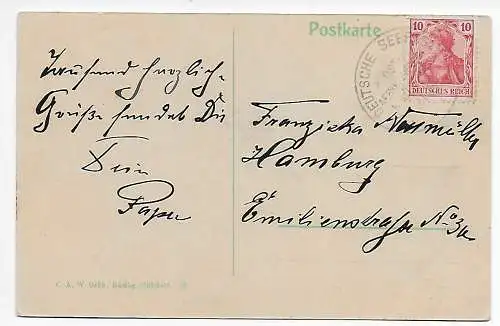 Postkarte
DEUTSCHE SEE
10 10
DEUTSCHES REICH
Tausend herzlich-
Grüße sendet Dir
Dein
Papa
Franziska Neumüller
Hamburg
Emilienstraße No 3a